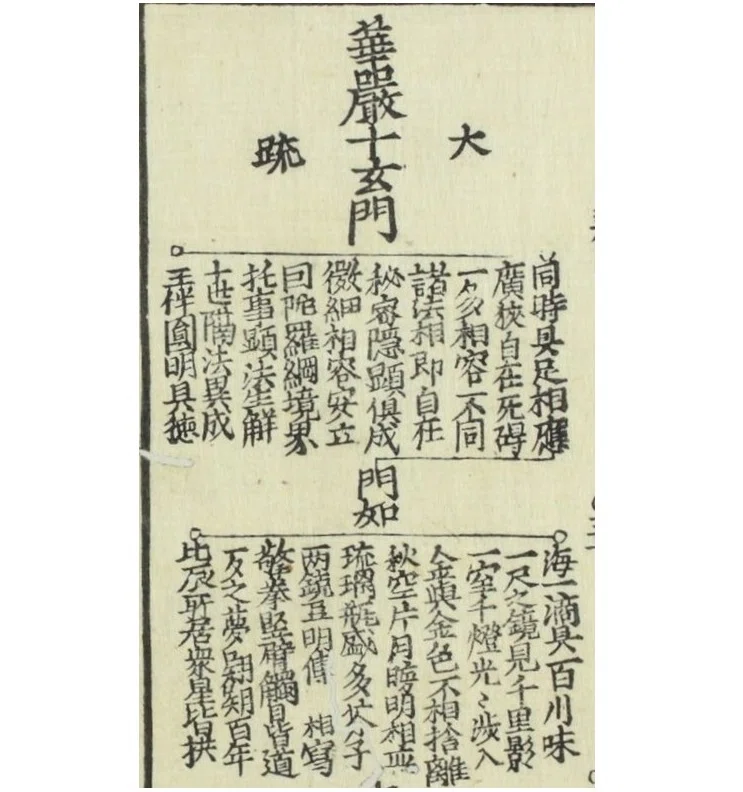 華嚴十玄門
大
疏
同時具足相應
廣狹自在無碍
一多相容不同
諸法相即自在
秘密隱顯俱成
微細相容安立
因陀羅網境界
托事顯法生解
十世隔法異成
主伴圓明具德
門如
海一滴具百川味
一尺之鏡見千里影
一室千燈光〻涉入
金與金色不相捨離
秋空片月晦明相並
琉璃瓶盛多芥子
兩鏡互明傳　相寫
擎拳竪臂觸目皆道
一夕之夢翱翔百年
北辰所居衆星皆拱